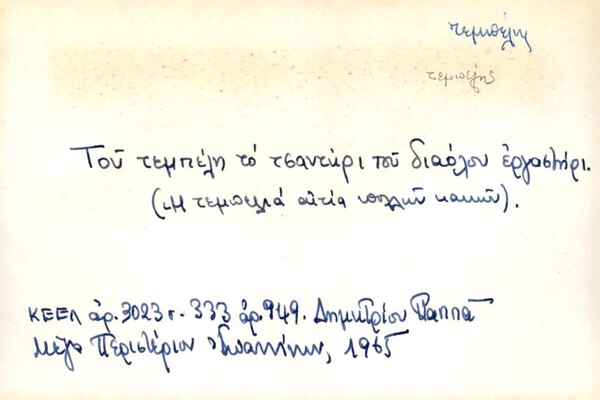 τεμπέλης
τεμπέλης
Τοῦ τεμπέλη τό τσαντήρι τοῦ διαόλου ἐργαστήρι.
(Ἡ τεμπελιά αἰτία πολλῶν κακῶν).
ΚΕΕΛ ἀρ. 3023 σ. 333 ἀρ. 949. Δημητρίου Παππᾶ
Μέγα Περιστέριον Ἰωαννίνων, 1965